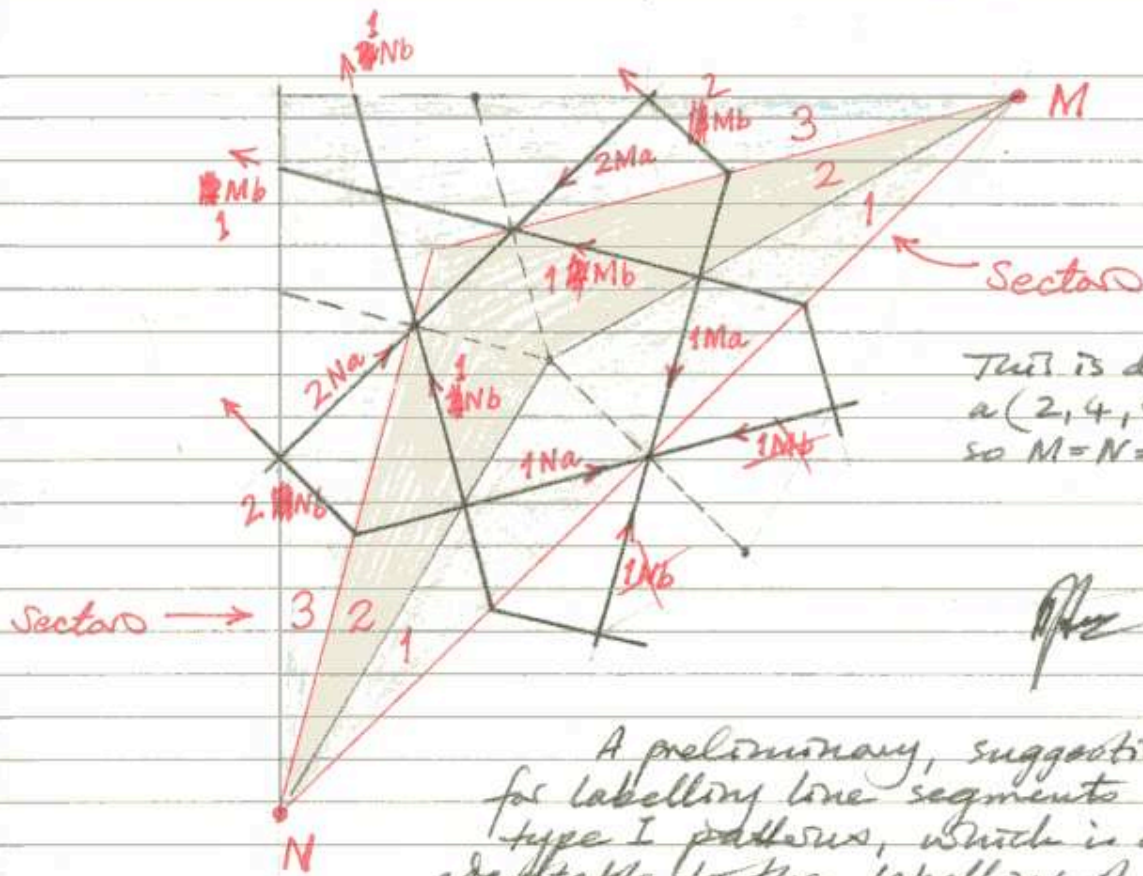 1
Nb
2
Mb
M
3
2Ma
2
Mb
1
1
1 Mb
Sectors
1Ma
This is d
a (2, 4,
so M = N =
2Na
1
Nb
1Na
1Mb
2 Nb
1Nb
Sectors
3 2
1
A preliminary, suggesti
for labelling line segments
type I patterns, which is a
N